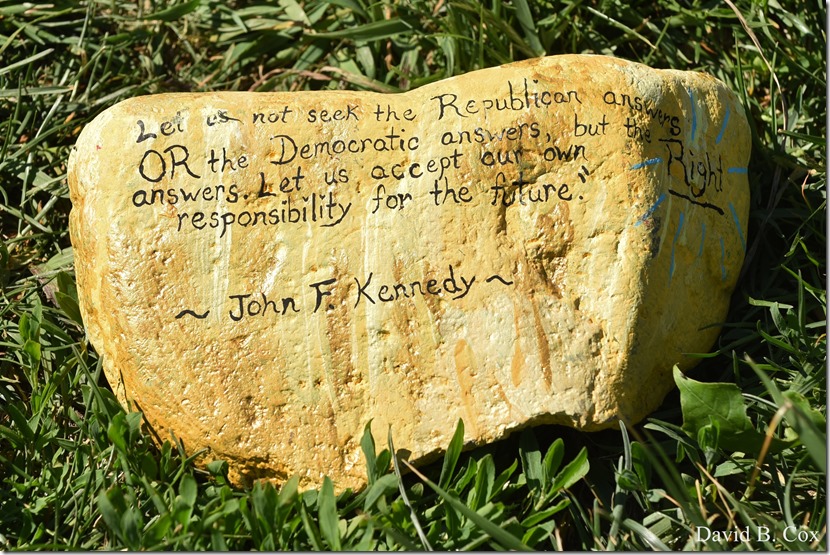 Let us not seek the Republican answers
OR the Democratic answers, but the Right
answers. Let us accept our own
responsibility for the future."
~ John F. Kennedy ~
David B. Cox